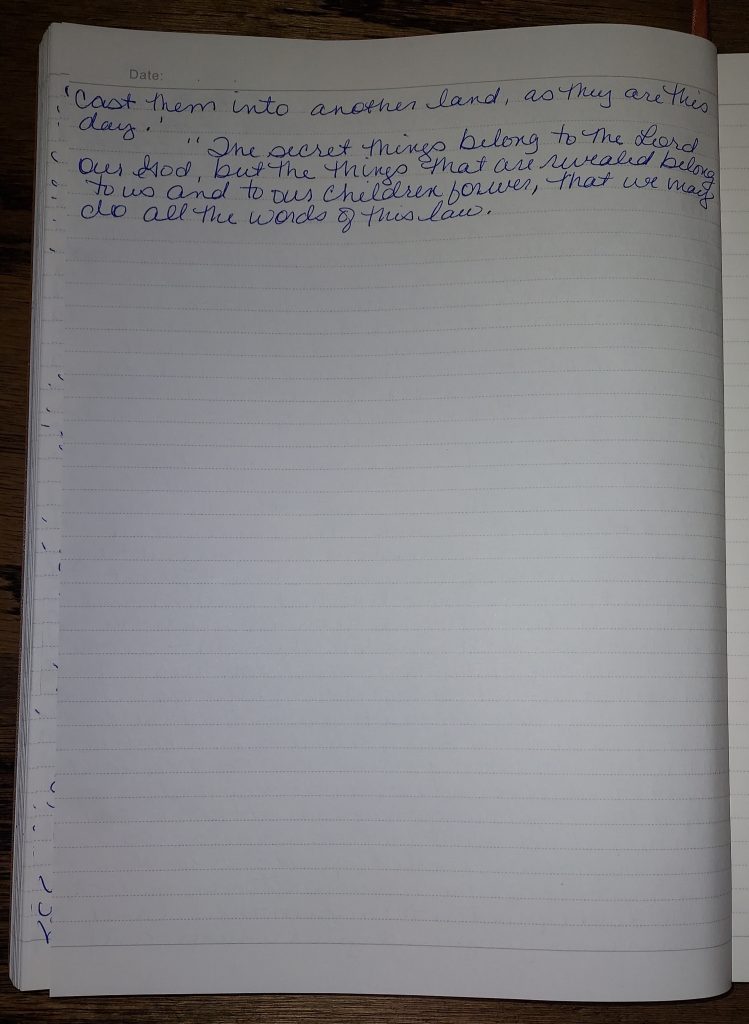 Date:
'cast them into another land, as they are this
day.'
"The secret things belong to the Lord
our God, but the things that are revealed belong
to us and to our children forever, that we may
do all the words of this law.